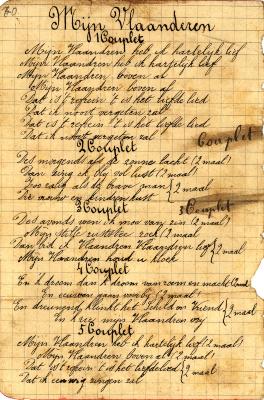 70
Mijn Vlaanderen
1 Couplet
Mijn Vlaandren heb ik hartelijk lief
Mijn Vlaandren heb ik hartelijk lief
Mijn Vlaandren boven al
Mijn Vlaandren boven al
Dat is 't refrein t is het liefde lied
Dat ik nooit vergeten zal
Dat is 't refrein t is het liefde lied
Dat ik nooit vergeten zal
Couplet
2 Couplet
Des morgends als de zonne lacht (2 maal)
Dan zing ik blij vol lust (2 maal)
Zoo zalig als de brave man } 2 maal
Die vrouw en kinderen kust
3 Couplet
3 Couplet
Des avonds voor ik moe van zin (2 maal)
Mijn stille ruststee zoek (2 maal)
Dan bid ik Vlaendren Vlaendren lief } 2 maal
Mijn Vlaandren houd u kloek
4 Couplet
En k droom dan k droom van roem en macht (2 maal)
En eeuwen gaan voorbij (2 maal)
En dreunend klinkt het Schild en Vriend } 2 maal
En k zie mijn Vlaandren vrij
5 Couplet
Mijn Vlaandren heb ik hartelijk lief (2 maal)
Mijn Vlaandren boven al (2 maal)
Dat is t refrein t is het liefdelied } 2 maal
Dat ik eeuwig zingen zal